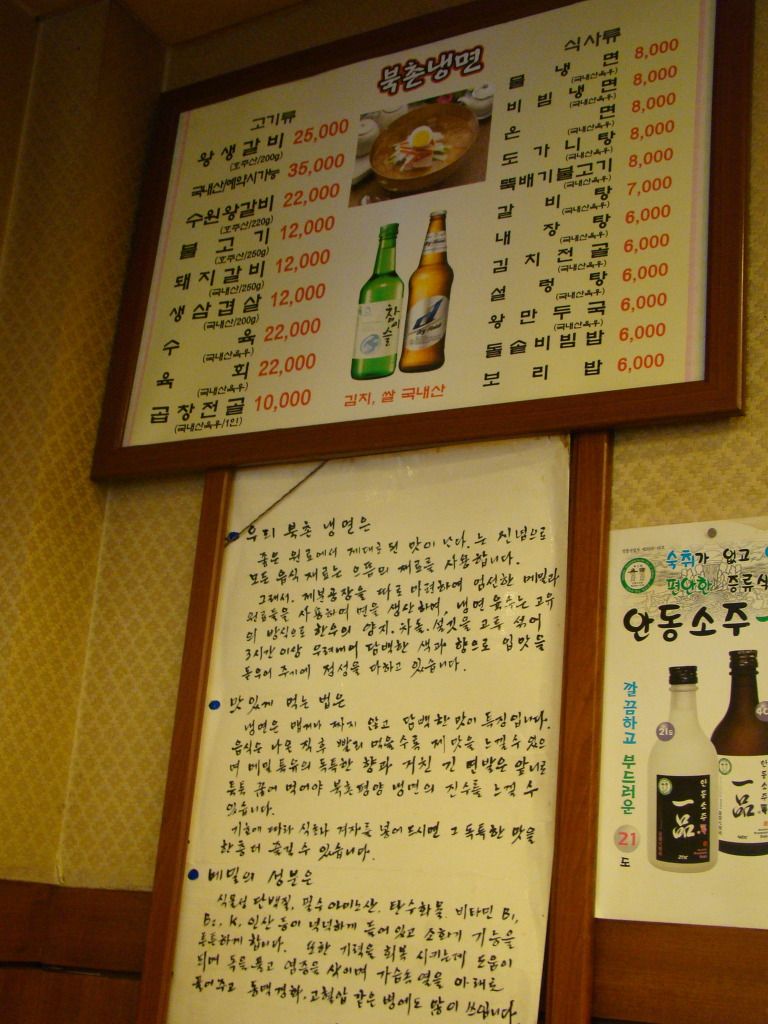 북촌냉면
고기류
왕생갈비 25,000
(호주산/200g)
국내산/예약시가능 35,000
수원왕갈비 22,000
(호주산/220g)
불고기 12,000
(호주산/250g)
돼지갈비 12,000
(국내산/250g)
생삼겹살 12,000
(국내산/200g)
수육 22,000
(국내산육우)
육회 22,000
(국내산육우)
곱창전골 10,000
(국내산육우/1인)
참이슬
김치, 쌀 국내산
식사류
물냉면 8,000
(국내산육우)
비빔냉면 8,000
(국내산육우)
온면 8,000
(국내산육우)
도가니탕 8,000
뚝배기불고기 8,000
(국내산육우)
갈비탕 7,000
내장탕 6,000
(국내산육우)
김치전골 6,000
설렁탕 6,000
(국내산육우)
왕만두국 6,000
(국내산육우)
돌솥비빔밥 6,000
보리밥 6,000
우리 북촌 냉면은
좋은 원료에서 제대로 된 맛이 난다. 는 신념으로
모든 음식 재료는 으뜸의 재료를 사용합니다.
그래서, 제분공장을 따로 마련하여 엄선한 메밀과
원료들을 사용하여 면을 생산하며, 냉면 육수는 고유
의 방식으로 한우의 양지. 차돌. 설깃을 고루 섞어
3시간이상 우려내어 담백한 색과 향으로 입맛을
돋우어 주기에 정성을 다하고 있습니다.
맛있게 먹는 법은
냉면은 맵거나 짜지 않고 담백한 맛이 특징입니다.
음식이 나온 직후 빨리 먹을수록 제 맛을 느낄 수 있으
며 메밀 특유의 독특한 향과 거친 긴 면발은 앞니로
툭툭 끊어 먹어야 북촌평양 냉면의 진수를 느낄 수
있습니다.
기호에 따라 식초와 겨자를 넣어 드시면 그 독특한 맛을
한층 더 즐길 수 있습니다.
메밀의 성분은
식물성 단백질, 필수 아미노산. 탄수화물. 비타민 B1,
B2, K, 인산 등이 넉넉하게 들어 있고 소화기 기능을
튼튼하게 합니다. 또한 기력을 회복 시키는데 도움이
되며 독을 풀고 염증을 삭이며 가슴속 열을 아래로
풀어주고 동맥경화. 고혈압 같은 병에도 많이 쓰입니다.
숙취가 없고
편안한 증류식
안동소주
깔끔하고 부드러운 21도
21%
안동소주
一品